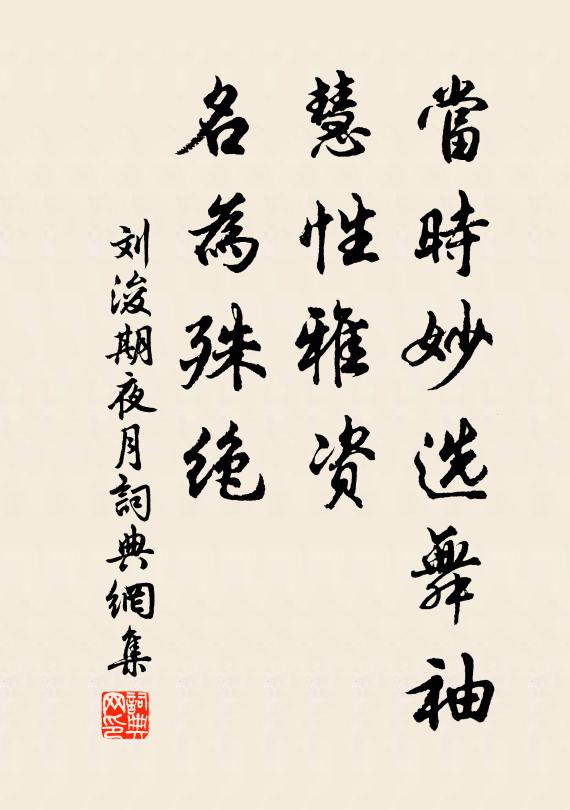 當時妙选舞袖
慧性雅资
名為殊绝
刘浚期夜月詞典網集
詞典网印